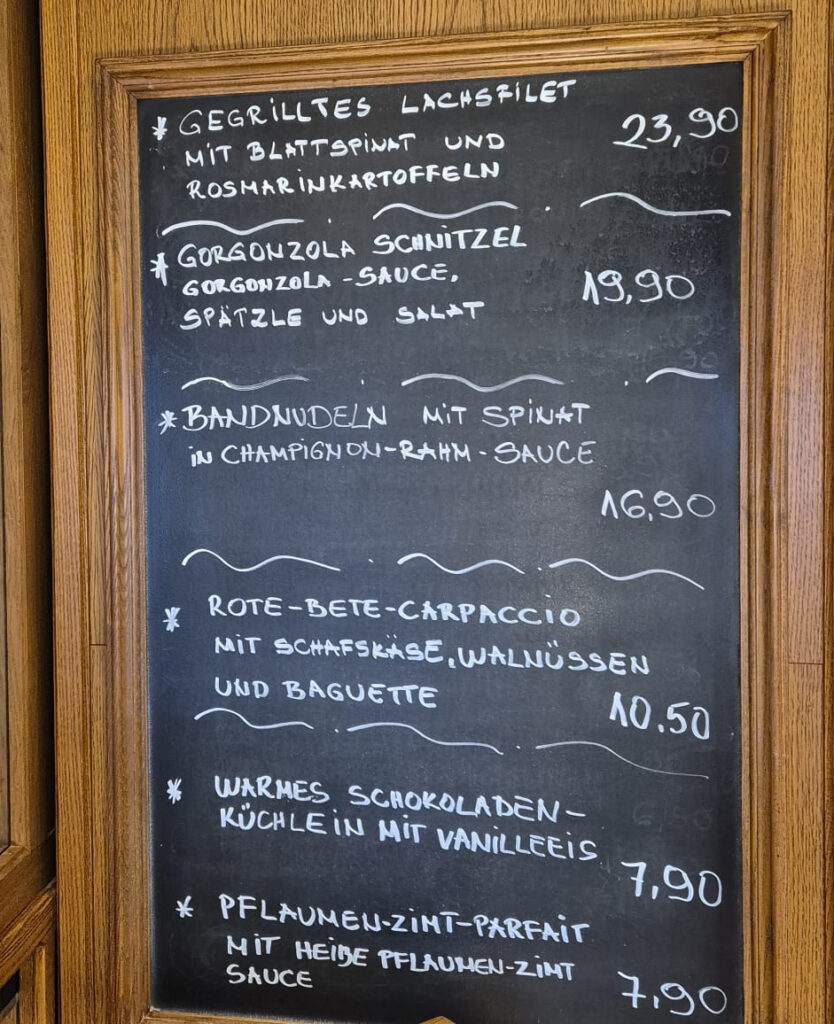 * GEGRILLTES LACHSFILET
MIT BLATTSPINAT UND 23,90
ROSMARINKARTOFFELN
* GORGONZOLA SCHNITZEL
GORGONZOLA-SAUCE, 19,90
SPÄTZLE UND SALAT
* BANDNUDELN MIT SPINAT
IN CHAMPIGNON-RAHM-SAUCE
16,90
* ROTE-BETE-CARPACCIO
MIT SCHAFSKÄSE, WALNÜSSEN
UND BAGUETTE 10.50
* WARMES SCHOKOLADEN-
KÜCHLEIN MIT VANILLEEIS
7,90
* PFLAUMEN-ZIMT-PARFAIT
MIT HEIßE PFLAUMEN-ZIMT
SAUCE 7,90